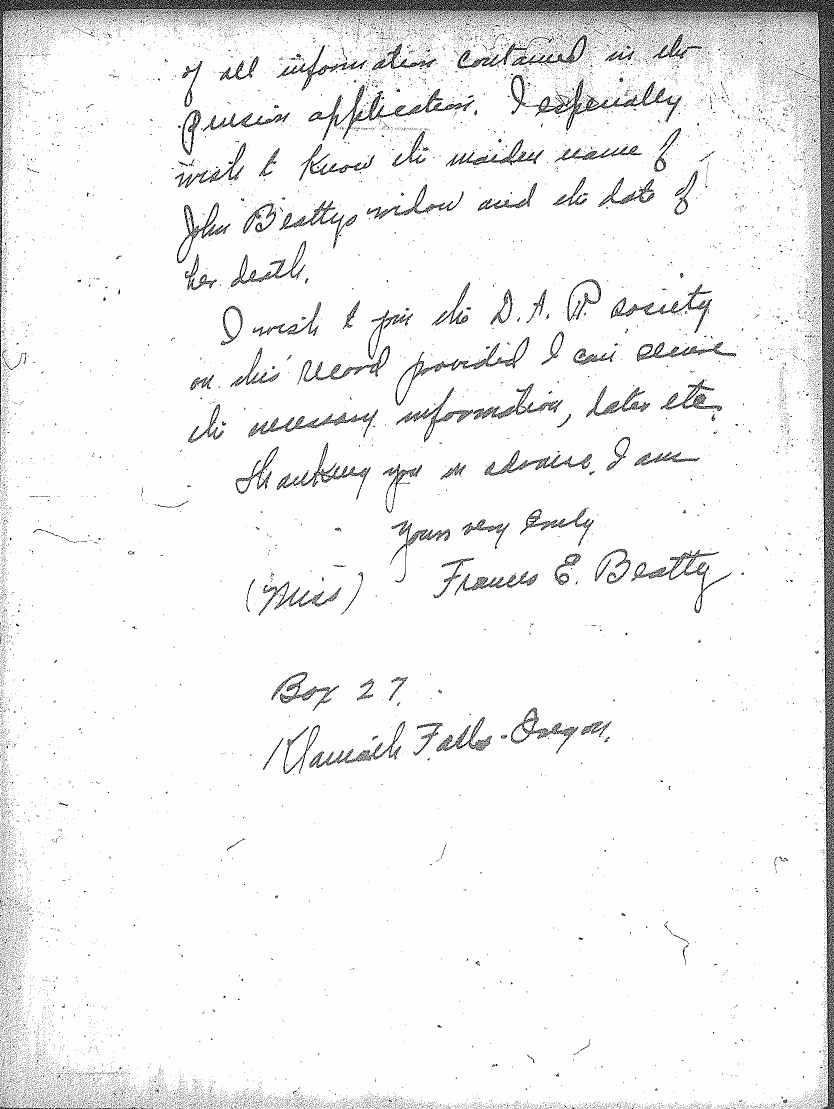 of all information contained in the
pension application. I especially
wish to know the maiden name of
John Beattys widow and the date of
her death.
I wish to join the D.A.R. society
on this record provided I can secure
the necessary information, dates etc.
Thanking you in advance, I am
Yours very truly
(Miss) Frances E. Beatty.
Box 27.
Klamath Falls - Oregon.